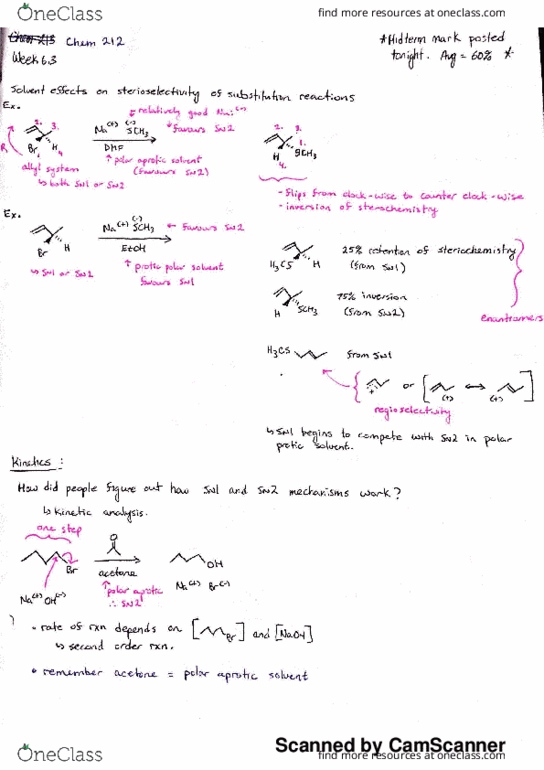 OneClass
find more resources at oneclass.com
Chem 213 Chem 212
* Midterm mark posted
tonight. Avg = 60% *
Week 6.3
Solvent effects on sterioselectivity of substitution reactions
Ex.
relatively good Nu:(-)
Na(+) (-)SCH3 favours SN2
DMF
2. 3.
R Br H 4
2. 3.
1.
H SCH3
4.
polar aprotic solvent
(favours SN2)
allyl system
↳ both SN1 or SN2
- flips from clock-wise to counter clock-wise
- inversion of sterochemistry
Ex.
Na(+) (-)SCH3 ← favours SN2
Br H
EtOH
↳ SN1 or SN2
↑ protic polar solvent
favours SN1
H3CS H
25% retention of steriochemistry
(from SN1)
H SCH3
75% inversion
(from SN2)
enantiomers
H3CS from SN1
+ or [ (+) ↔ (+) ]
regioselectivity
↳ SN1 begins to compete with SN2 in polar
protic solvent.
Kinetics :
How did people figure out how SN1 and SN2 mechanisms work?
↳ kinetic analysis.
one step
O
Br
acetone
OH
Na(+) Br(-)
Na(+) OH(-)
↑ polar aprotic
∴ SN2
• rate of rxn depends on [ Br ] and [NaOH]
↳ second order rxn.
• remember acetone = polar aprotic solvent
Scanned by CamScanner
OneClass
find more resources at oneclass.com